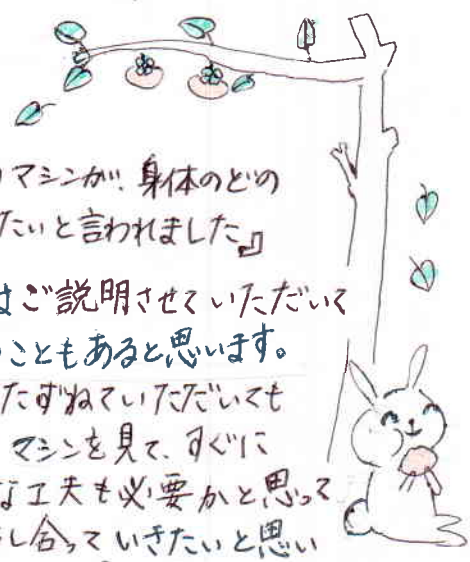 マシンが、身体のどの
たいと言われました』
はご説明させていただいて
こともあると思います。
たずねていただいても
マシンを見て、すぐに
な工夫も必要かと思って
し合っていきたいと思い